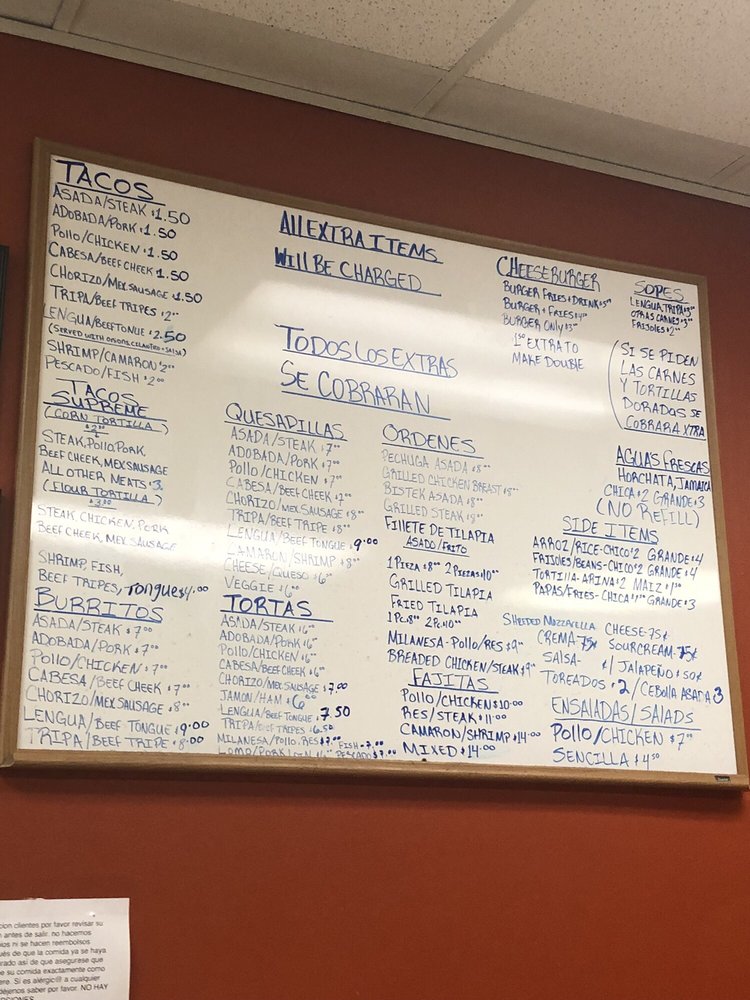 TACOS
ASADA/STEAK $1.50
ADOBADA/PORK $1.50
POLLO/CHICKEN $1.50
CABESA/BEEF CHEEK 1.50
CHORIZO/MEX SAUSAGE $1.50
TRIPA/BEEF TRIPES $2⁰⁰
LENGUA/BEEF TONUE $2.50
(SERVED WITH ONIONS, CILANTRO + SALSA)
SHRIMP/CAMARON $2⁰⁰
PESCADO/FISH $2⁰⁰
TACOS
SUPREME
(CORN TORTILLA)
STEAK, POLLO, PORK,
BEEF CHEEK, MEX SAUSAGE
ALL OTHER MEATS $3
(FLOUR TORTILLA)
STEAK, CHICKEN, PORK
BEEF CHEEK, MEX SAUSAGE
SHRIMP, FISH,
BEEF TRIPES, TONGUE $4.00
BURRITOS
ASADA/STEAK $7⁰⁰
ADOBADA/PORK $7⁰⁰
POLLO/CHICKEN $7⁰⁰
CABESA/BEEF CHEEK $7⁰⁰
CHORIZO/MEX SAUSAGE $8⁰⁰
LENGUA/BEEF TONGUE $9.00
TRIPA/BEEF TRIPE $8.00
All EXTRA ITEMS
Will BE CHARGED
TODOS LOS EXTRAS
SE COBRARAN
QUESADILLAS
ASADA/STEAK $7⁰⁰
ADOBADA/PORK $7⁰⁰
POLLO/CHICKEN $7⁰⁰
CABESA/BEEF CHEEK $7⁰⁰
CHORIZO/MEX SAUSAGE $8⁰⁰
TRIPA/BEEF TRIPE $8⁰⁰
LENGUA/BEEF TONGUE $9.00
CAMARON/SHRIMP $8⁰⁰
CHEESE/QUESO $6⁰⁰
VEGGIE $6⁰⁰
TORTAS
ASADA/STEAK $6⁰⁰
ADOBADA/PORK $6⁰⁰
POLLO/CHICKEN $6⁰⁰
CABESA/BEEF CHEEK $6⁰⁰
CHORIZO/MEX SAUSAGE $7.00
JAMON/HAM $6⁰⁰
LENGUA/BEEF TONGUE $7.50
TRIPA/BEEF TRIPES $6.50
MILANESA/POLLO, RES $7.⁰⁰ FISH-7.⁰⁰
LOMO/PORK LOIN $6⁰⁰ PESCADO $7.⁰⁰
ORDENES
PECHUGA ASADA $8⁰⁰
GRILLED CHICKEN BREAST $8⁰⁰
BISTEK ASADA $8⁰⁰
GRILLED STEAK $8⁰⁰
FILLETE DE TILAPIA
ASADO/FRITO
1 PIEZA $8⁰⁰ 2 PIEZAS $10⁰⁰
GRILLED TILAPIA
FRIED TILAPIA
1 PC. 8⁰⁰ 2 PC. 10⁰⁰
MILANESA-POLLO/RES $9⁰⁰
BREADED CHICKEN/STEAK $9⁰⁰
FAJITAS
POLLO/CHICKEN $10.00
RES/STEAK $11.00
CAMARON/SHRIMP $14.00
MIXED $14.00
CHEESEBURGER
BURGER FRIES + DRINK $5⁰⁰
BURGER + FRIES $4⁰⁰
BURGER ONLY $3⁰⁰
EXTRA TO
MAKE DOUBLE
SOPES
LENGUA, TRIPA
OTRAS CARNES $3⁰⁰
FRIJOLES
(SI SE PIDEN
LAS CARNES
Y TORTILLAS
DORADAS SE
COBRARA XTRA
AGUAS FRESCAS
HORCHATA, JAMAICA
CHICA $2 GRANDE $3
(NO REFILL)
SIDE ITEMS
ARROZ/RICE-CHICO $2 GRANDE $4
FRIJOLES/BEANS-CHICO $2 GRANDE $4
TORTILLA-ARINA $2 MAIZ $1⁰⁰
PAPAS/FRIES-CHICA GRANDE $3
MOZZARELLA CHEESE-75¢
CREMA-75¢ SOUR CREAM-75¢
SALSA- JALAPEÑO $50¢
TOREADOS $2/CEBOLLA ASADA 3
ENSALADAS/SALADS
POLLO/CHICKEN $7⁰⁰
SENCILLA $4⁵⁰
cion clientes por favor revisar su
antes de salir. no hacemos
ni se hacen reembolsos
de que la comida ya se haya
así de que asegurese que
su comida exactamente como
Si es alérgic@ a cualquier
déjenos saber por favor. NO HAY